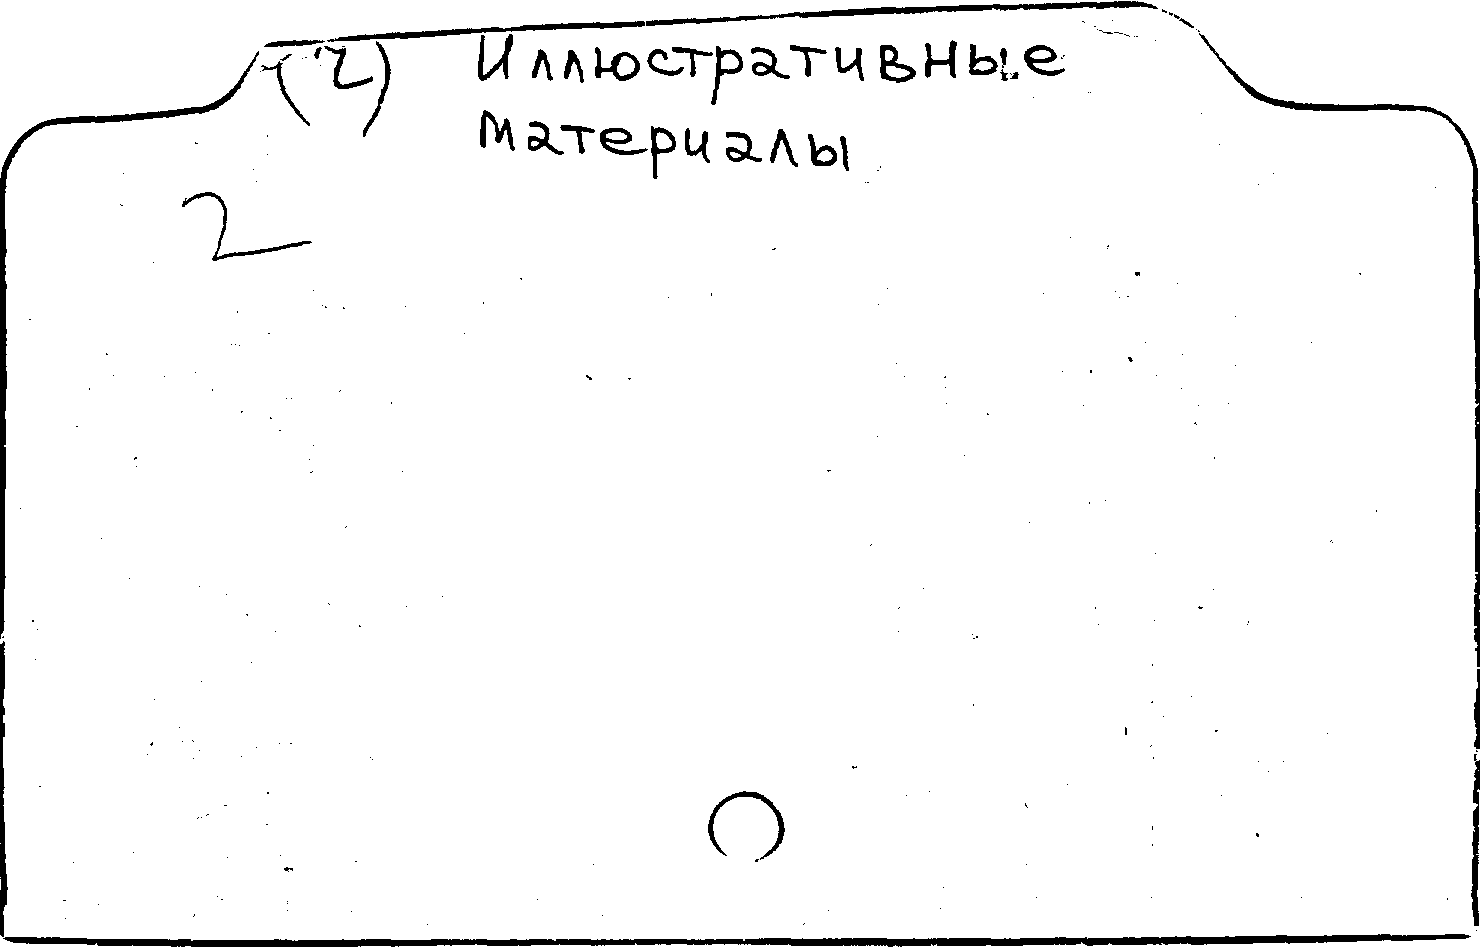 (2) Иллюстративные
материалы
2